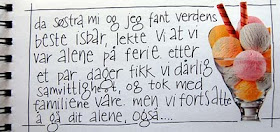 da søstra mi og jeg fant verdens
beste isbar, lekte vi at vi
var alene på ferie. etter
et par dager fikk vi dårlig
samvittighet, og tok med
familiene våre. men vi fortsatte
å gå dit alene, også....